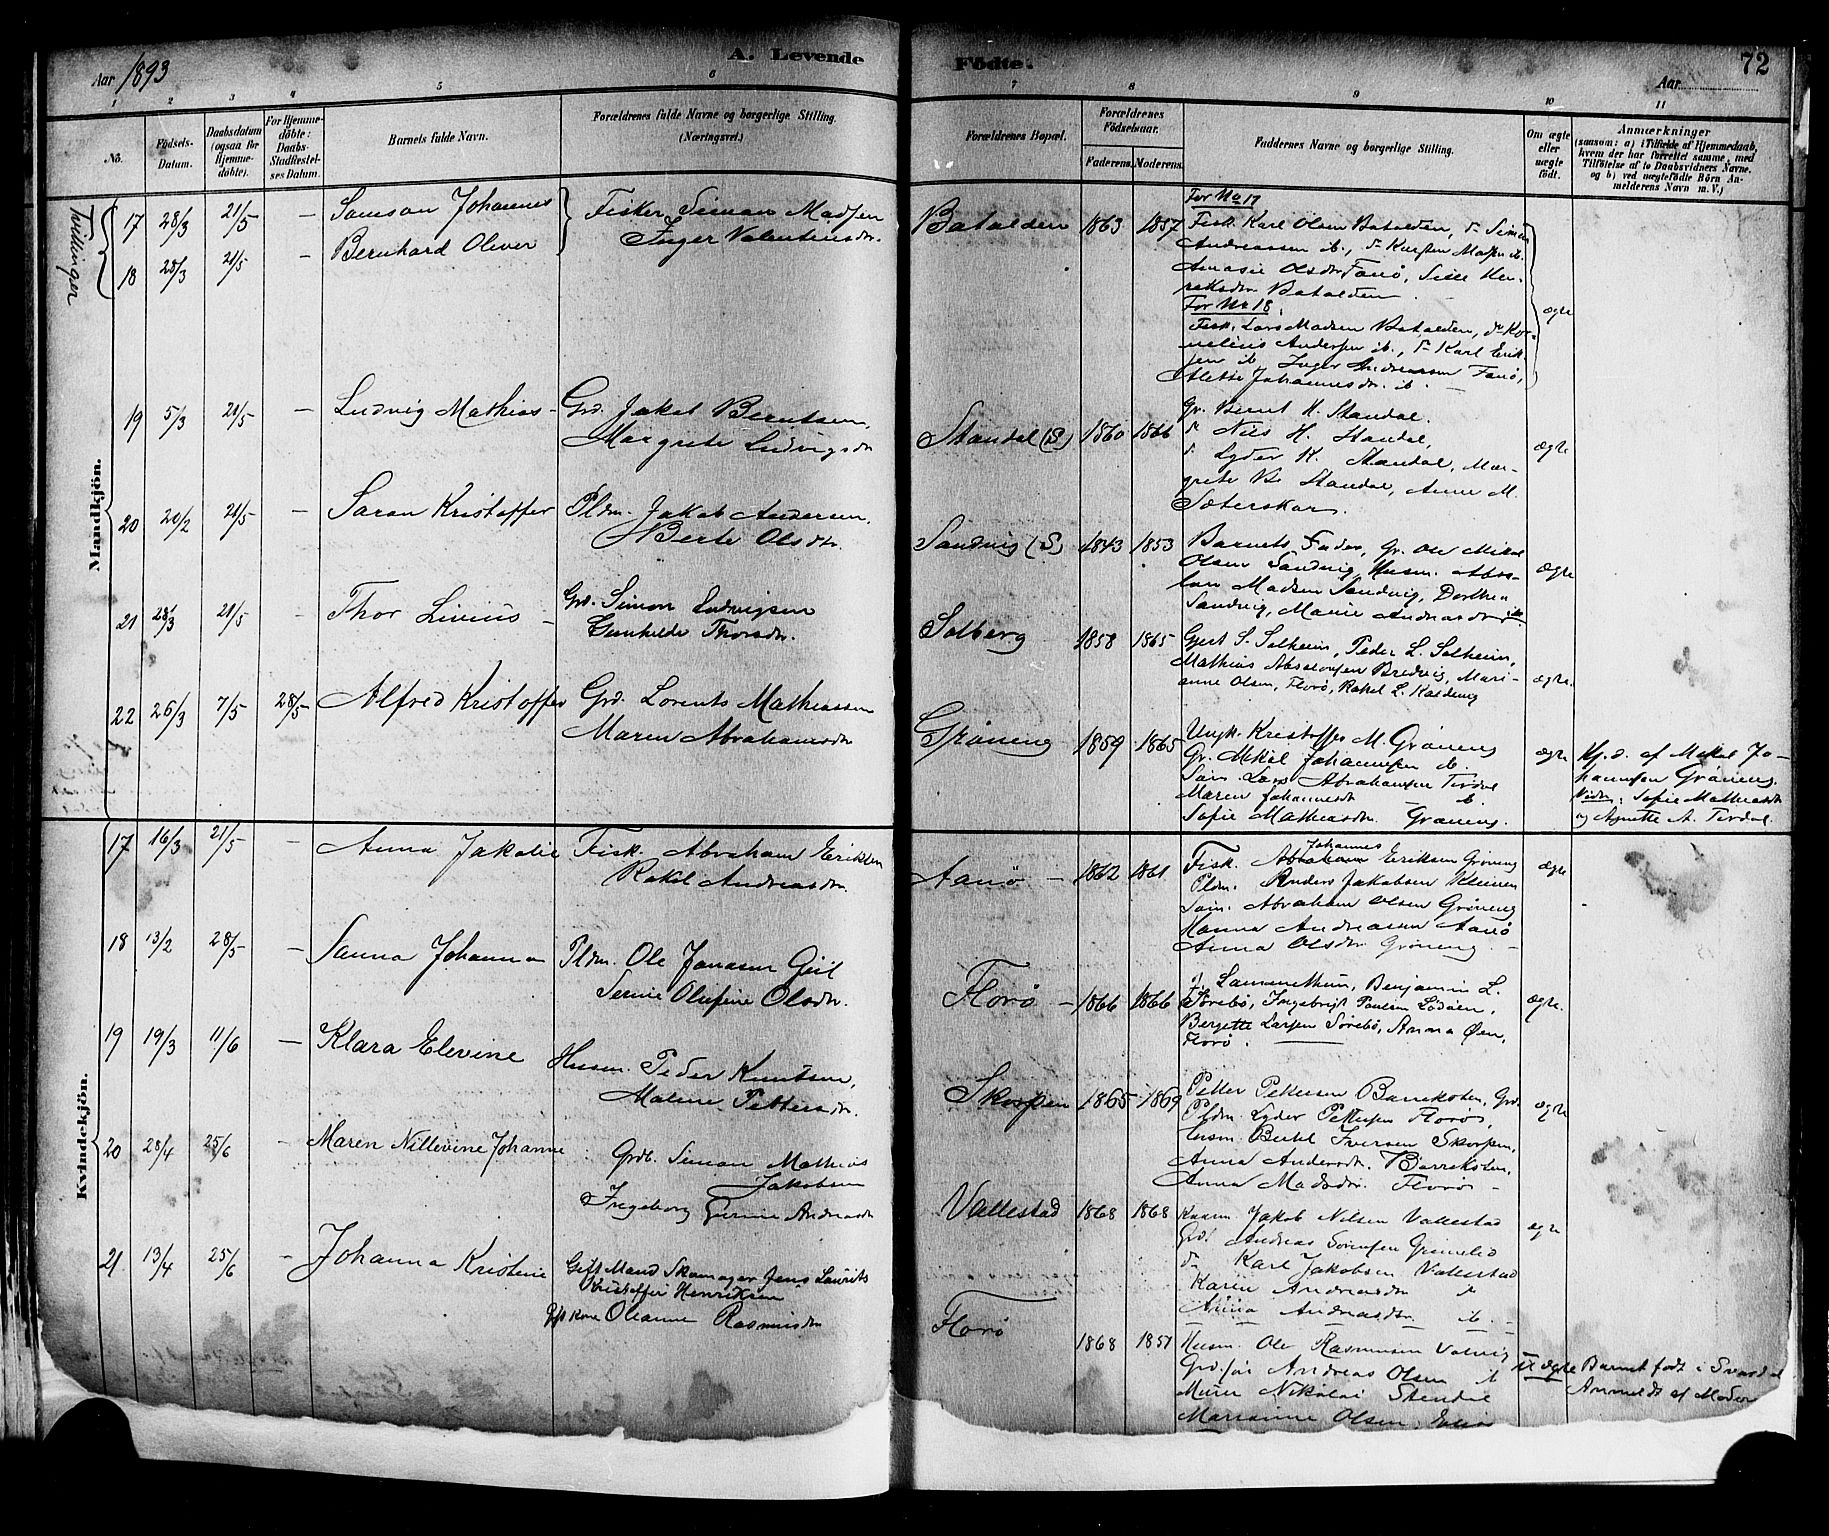 Aar 1893
A. Levende
Födte.
Aar
72
1 2 3 4 5 6 7 8 9 10 11
No.
Födsels-Datum.
Daabsdatum (ogsaa for Hjemmedöbte).
For Hjemmedöbte: Daabs-Stadfæstelses Datum.
Barnets fulde Navn.
Forældrenes fulde Navne og borgerlige Stilling. (Næringsvei.)
Forældrenes Bopæl.
Forældrenes Födselsaar.
Faderens. Moderens.
Faddernes Navne og borgerlige Stilling.
Om ægte eller uægte födt.
Anmærkninger
(saasom: a) i Tilfælde af Hjemmedaab, hvem der har forrettet samme, med Tilföielse af to Daabsvidners Navne. og b) ved uægtefödte Börn Anmelderens Navn m. V.)
Mandkjön.
Tvillinger
17 28/3 21/5 – Samson Johannes
18 28/3 21/5 – Bernhard Oliver
Fisker Simon Madsen
Inger Valentinsdr.
Batalden 1863 1857
For No 17
Fisk. Karl Olsen Batalden, do Simon
Andreassen ib., do Karsten Madsen ib.
Olsdr Fanø, Sille Hen-
riksdr Batalden
For No 18.
Fisk. Lars Madsen Batalden, do Kor-
nelius Andersen ib., do Karl Erik-
sen ib. Inger Andreassen Fanø,
Alette Johannesdr. ib.
ægte
19 5/3 21/5 – Ludvig Mathias –
Grd. Jakob Berntsen,
Margrete Ludvigsdr
Standal (S) 1860 1866
Gr. Bernt H. Standal.
do Nils H. Standal,
do Lyder K. Standal, Mar-
grete B. Standal, Anne M.
Sæterskar.
ægte
20 20/2 21/5 – Saron Kristoffer
Pldm. Jakob Andersen,
Berte Olsdtr.
Sandvig (S) 1843 1853
Barnets Fader, Gr. Ole Mikal
Olsen Sandvig, Husm. Abso-
lon Madsen Sandvig, Dorthea
Sandvig, Marie Andreasdtr ib.
ægte
21 28/3 21/5 – Thor Livius –
Grd. Simon Ludvigsen
Gunhilde Thorsdr.
Solberg 1858 1865
Gjert S. Solheim, Peder L. Solheim,
Mathias Absalonsen Bredvig, Mari-
anne Olsen, Florø, Rakel L.
ægte.
22 26/3 7/5 28/5 Alfred Kristoffer
Grd. Lorents Mathiassen
Maren Abrahamsdr
Grøneng 1859 1865
Ungk. Kristoffer M. Grøneng
Gr. Mikal Johannesen ib.
Lars Abrahamsen Tirdal
Maren Johannesdr ib.
Sofie Mathiasdr. Grøneng.
ægte
Hj.d. af Mikal Jo-
hannesen Grøneng.
Vidn: Sofie Mathiasdr
og Agnette A. Tirdal.
Kvindekjön.
17 16/3 21/5 – Anna Jakalie
Fisk. Abraham Eriksen
Rakel Andreasdr.
Aanø – 1862 1861
Johannes
Fisk. Abraham Eriksen Grøneng
Pldm. Anders Jakobsen
Abraham Olsen Grøneng
Hanna Andreassen Aanø
Anna Olsdtr Grøneng. –
ægte
18 13/2 28/5 – Sanna Johanna
Pldm. Ole Jonasen Geil
Serine Olufine Olsdr.
Florø – 1866 1866
J. Lammethun, Benjamin L.
Sørebø, Ingebrigt Paulsen
Bergette Larsen Sørebø, Anna Øen,
Florø.
ægte.
19 19/3 11/6 – Klara Elevine
Husm. Peder Knutsen,
Malene Pettersdr.
Skorpen 1865 1869
Petter Petersen Barekosten, Grd.
Pldm. Lyder Pettersen Florø,
Husm. Bertel Iversen Skorpen,
Anna Andersdr.
Anna Madsdr. Florø –
ægte
20 28/4 25/6 – Maren Nillevine Johanne
Grdb. Simon Mathias
Jakobsen
Ingeborg Gurine Andreasdr
Vallestad 1868 1868
Jakob Nilsen Vallestad
Grd. Andreas Sørensen Grimelid
do Karl Jakobsen Vallestad
Karen Andreasdtr
Anna Andreasdr. ib. –
ægte
21 13/4 25/6 – Johanna Kristine
Gift Mand Skomager Jens Laurits
Kristoffer Henriksen
Gft Kone Oleanne Rasmusdr
Florø 1868 1857
Husm. Ole Rasmussen
Grd.før Andreas Olsen ib
Murer Nikolai Stendal
Marianne Olsen,
uægte
Barnet født i Svardal
Anmeldt af Moderen